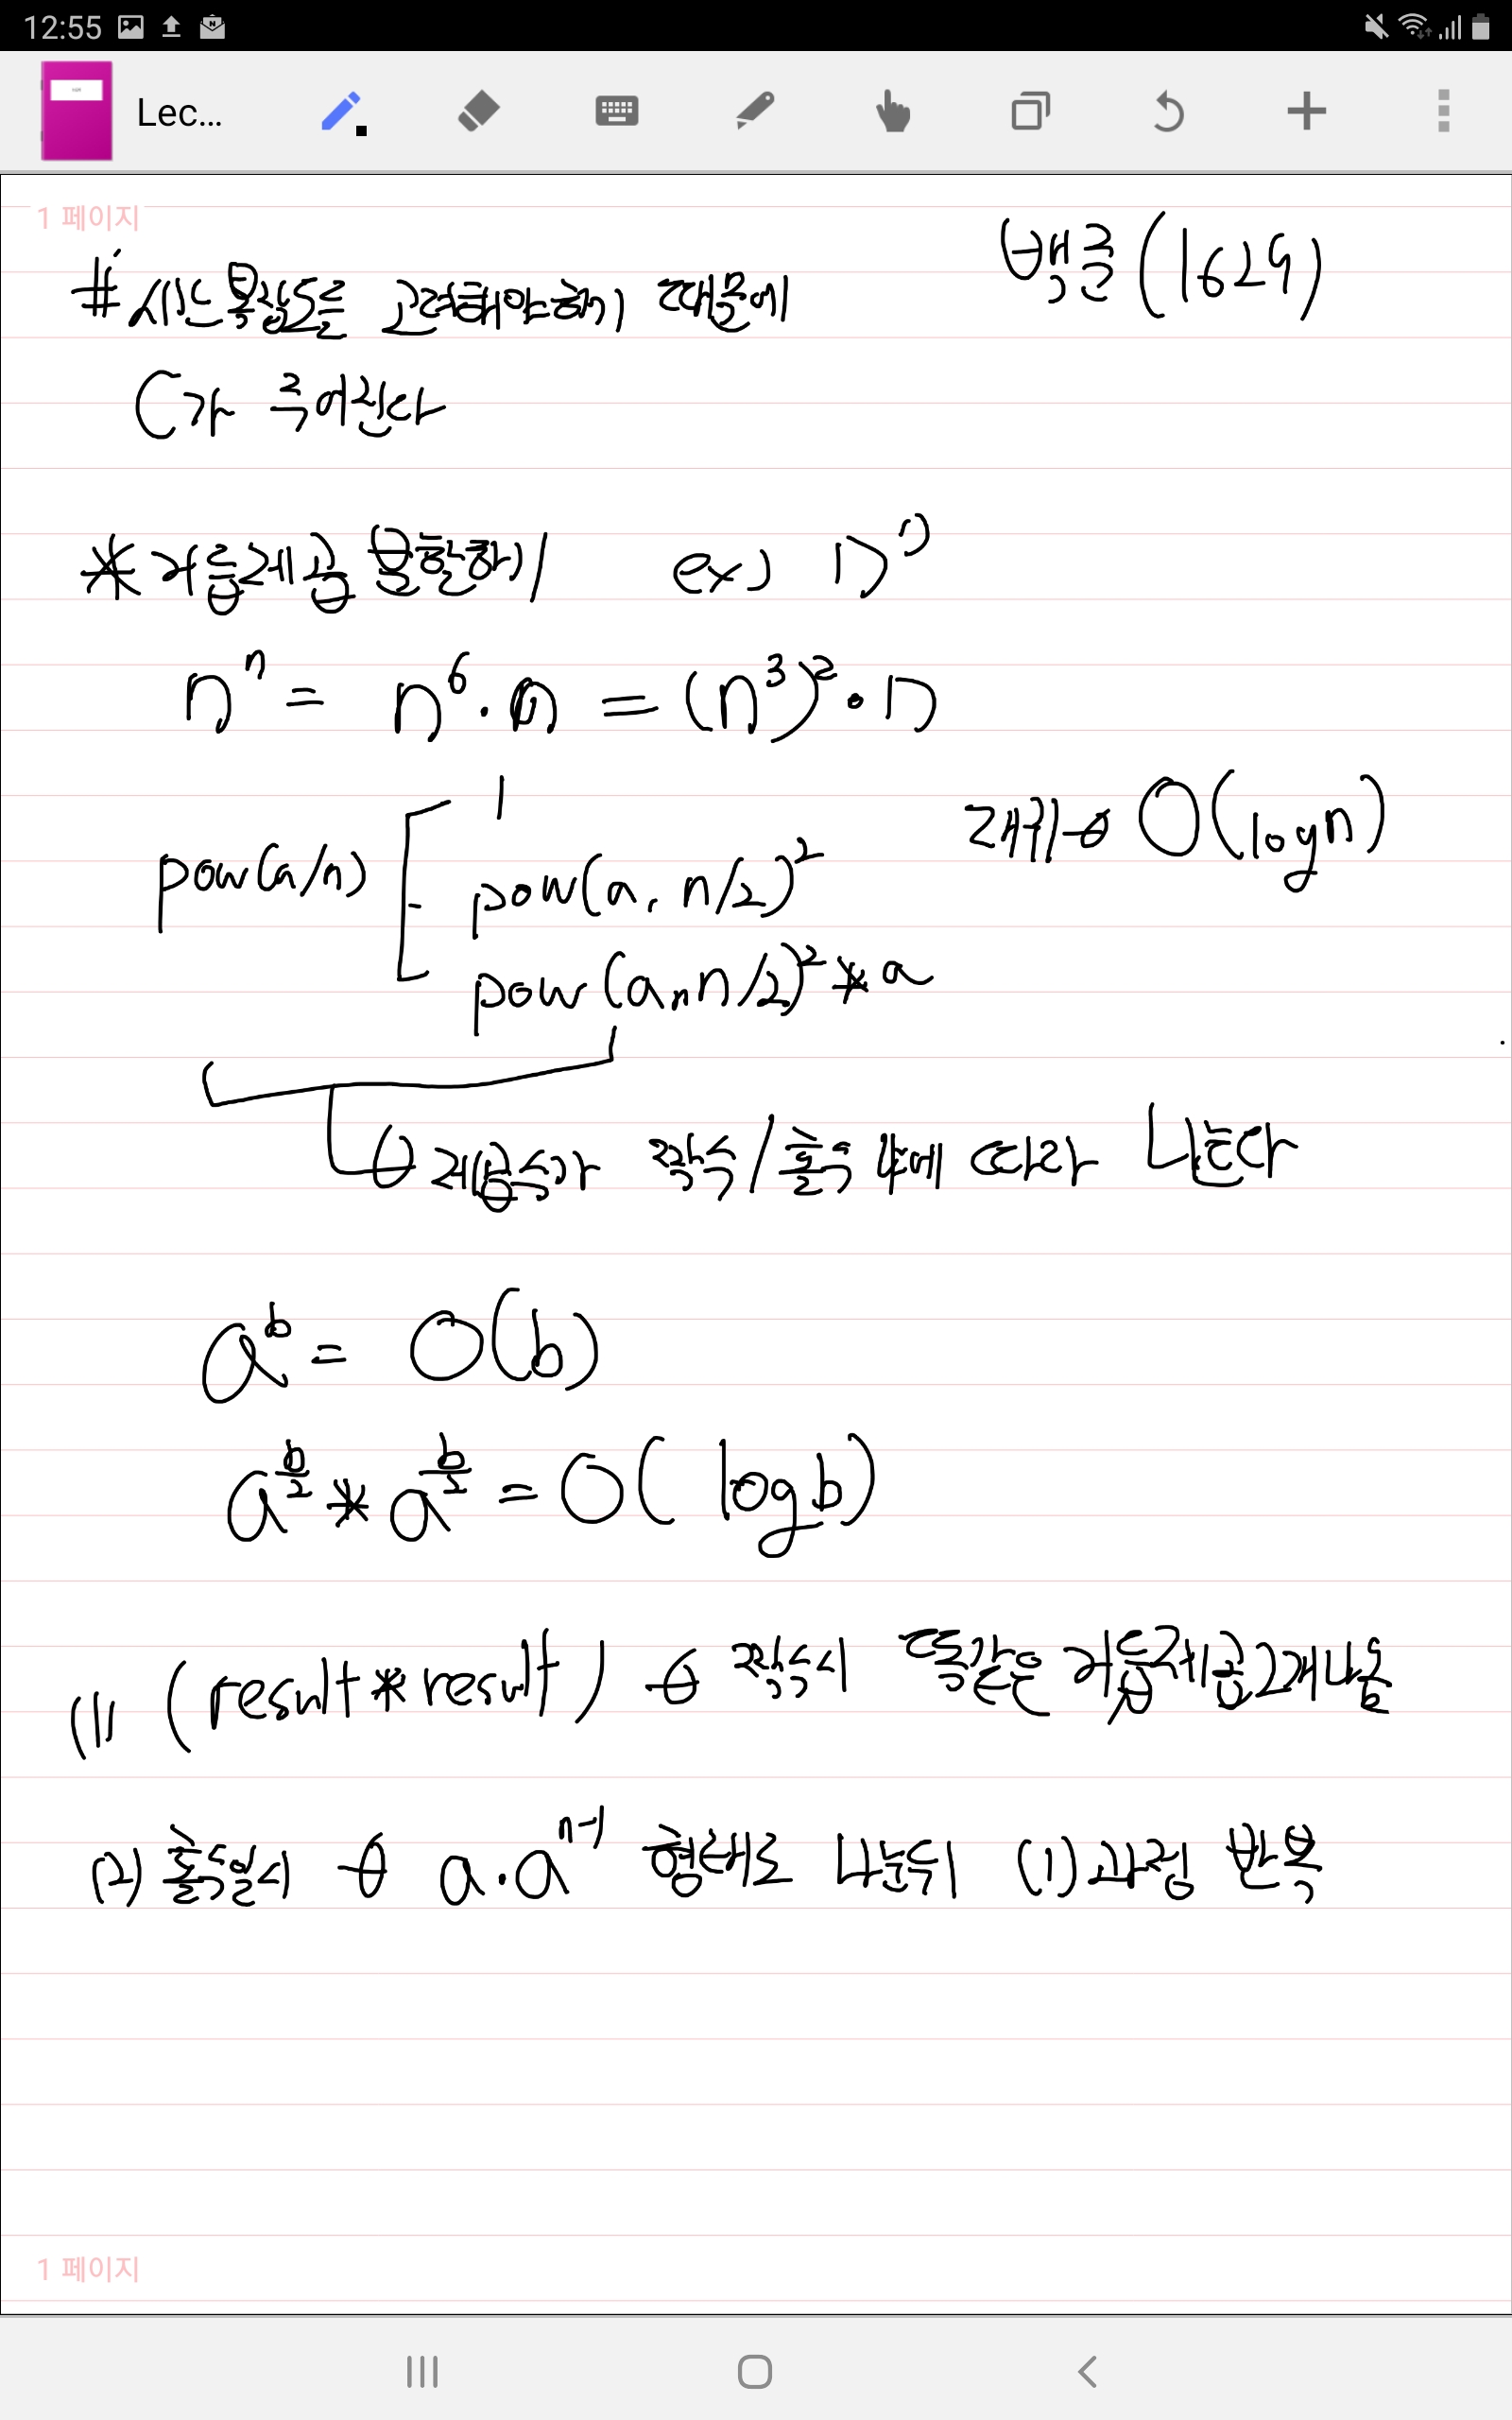 12:55
Lec...
1 페이지
백준 (1629)
# 시간복잡도를 고려해야하기 때문에
C가 주어진다
* 거듭제곱 분할하기 ex) n⁷
n⁷ = n⁶ · n = (n³)² · n
1
pow(a, n) pow(a, n/2)² 재귀→ O(log n)
pow(a, n/2)² * a
→ 제곱수가 짝수/홀수 에 따라 나눈다
a^b = O(b)
a^(b/2) * a^(b/2) = O( log b)
(1) (result * result) → 짝수시 똑같은 거듭제곱2개나눔
(2) 홀수일시 → a · a^(n-1) 형태로 나눈뒤 (1)과정 반복
1 페이지